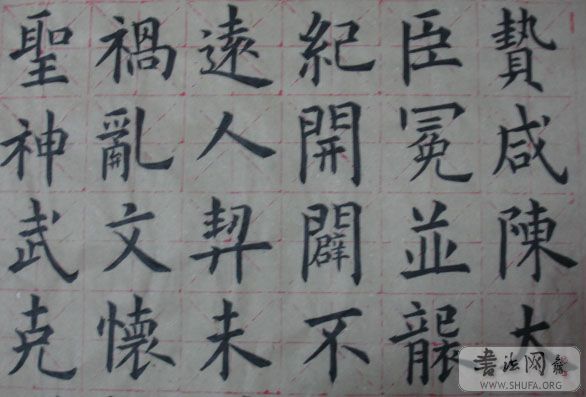 贄咸陳大
臣冕並襲
紀開闢不
遠人契未
禍亂文懷
聖神武克
书法网
WWW.SHUFA.ORG